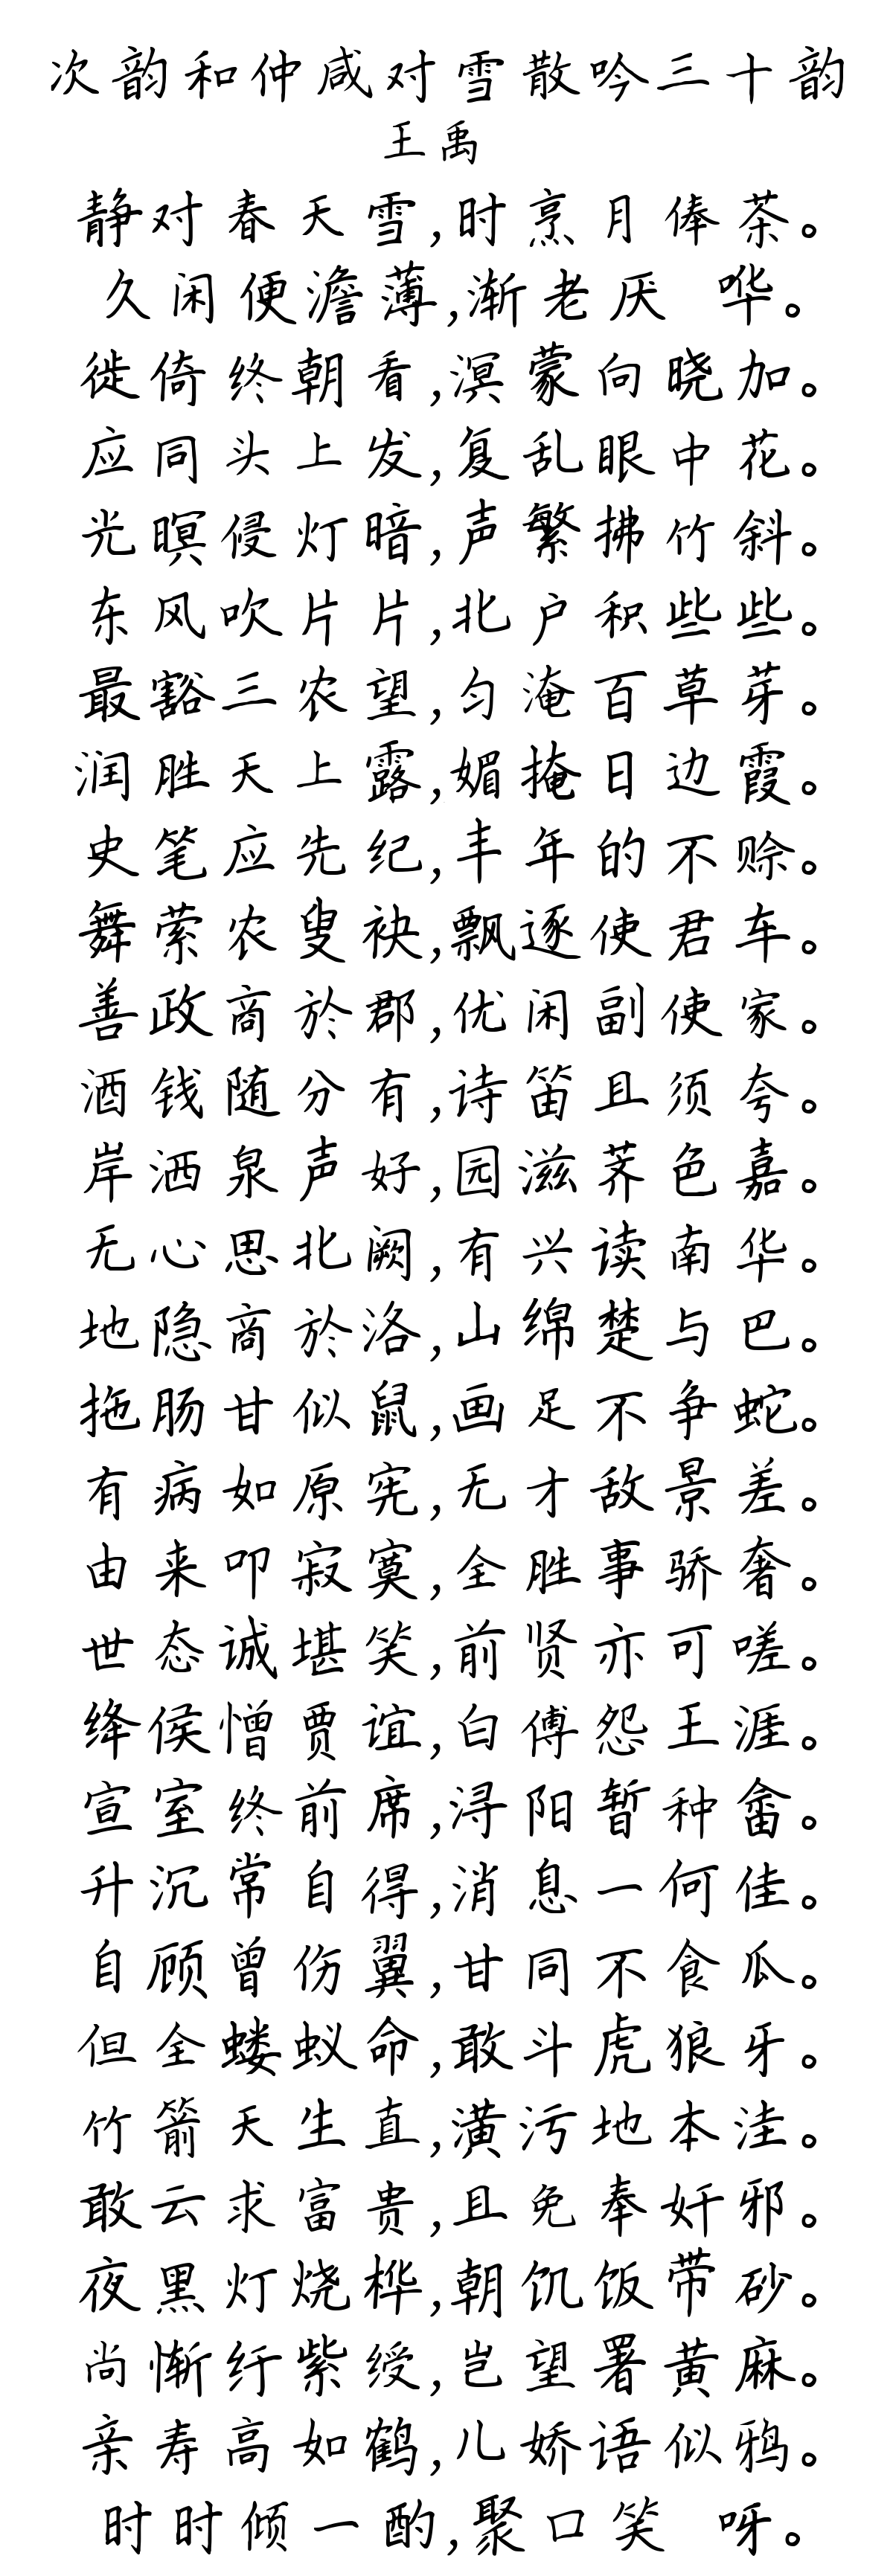 次韵和仲咸对雪散吟三十韵
王禹
静对春天雪,时烹月俸茶。
久闲便澹薄,渐老厌 哗。
徙倚终朝看,溟蒙向晓加。
应同头上发,复乱眼中花。
光暝侵灯暗,声繁拂竹斜。
东风吹片片,北户积些些。
最豁三农望,匀淹百草芽。
润胜天上露,媚掩日边霞。
史笔应先纪,丰年的不赊。
舞萦农叟袂,飘逐使君车。
善政商於郡,优闲副使家。
酒钱随分有,诗笛且须夸。
岸洒泉声好,园滋荠色嘉。
无心思北阙,有兴读南华。
地隐商於洛,山绵楚与巴。
拖肠甘似鼠,画足不争蛇。
有病如原宪,无才敌景差。
由来叩寂寞,全胜事骄奢。
世态诚堪笑,前贤亦可嗟。
绛侯憎贾谊,白傅怨王涯。
宣室终前席,浔阳暂种畲。
升沉常自得,消息一何佳。
自顾曾伤翼,甘同不食瓜。
但全蝼蚁命,敢斗虎狼牙。
竹箭天生直,潢污地本洼。
敢云求富贵,且免奉奸邪。
夜黑灯烧桦,朝饥饭带砂。
尚惭纡紫绶,岂望署黄麻。
亲寿高如鹤,儿娇语似鸦。
时时倾一酌,聚口笑 呀。